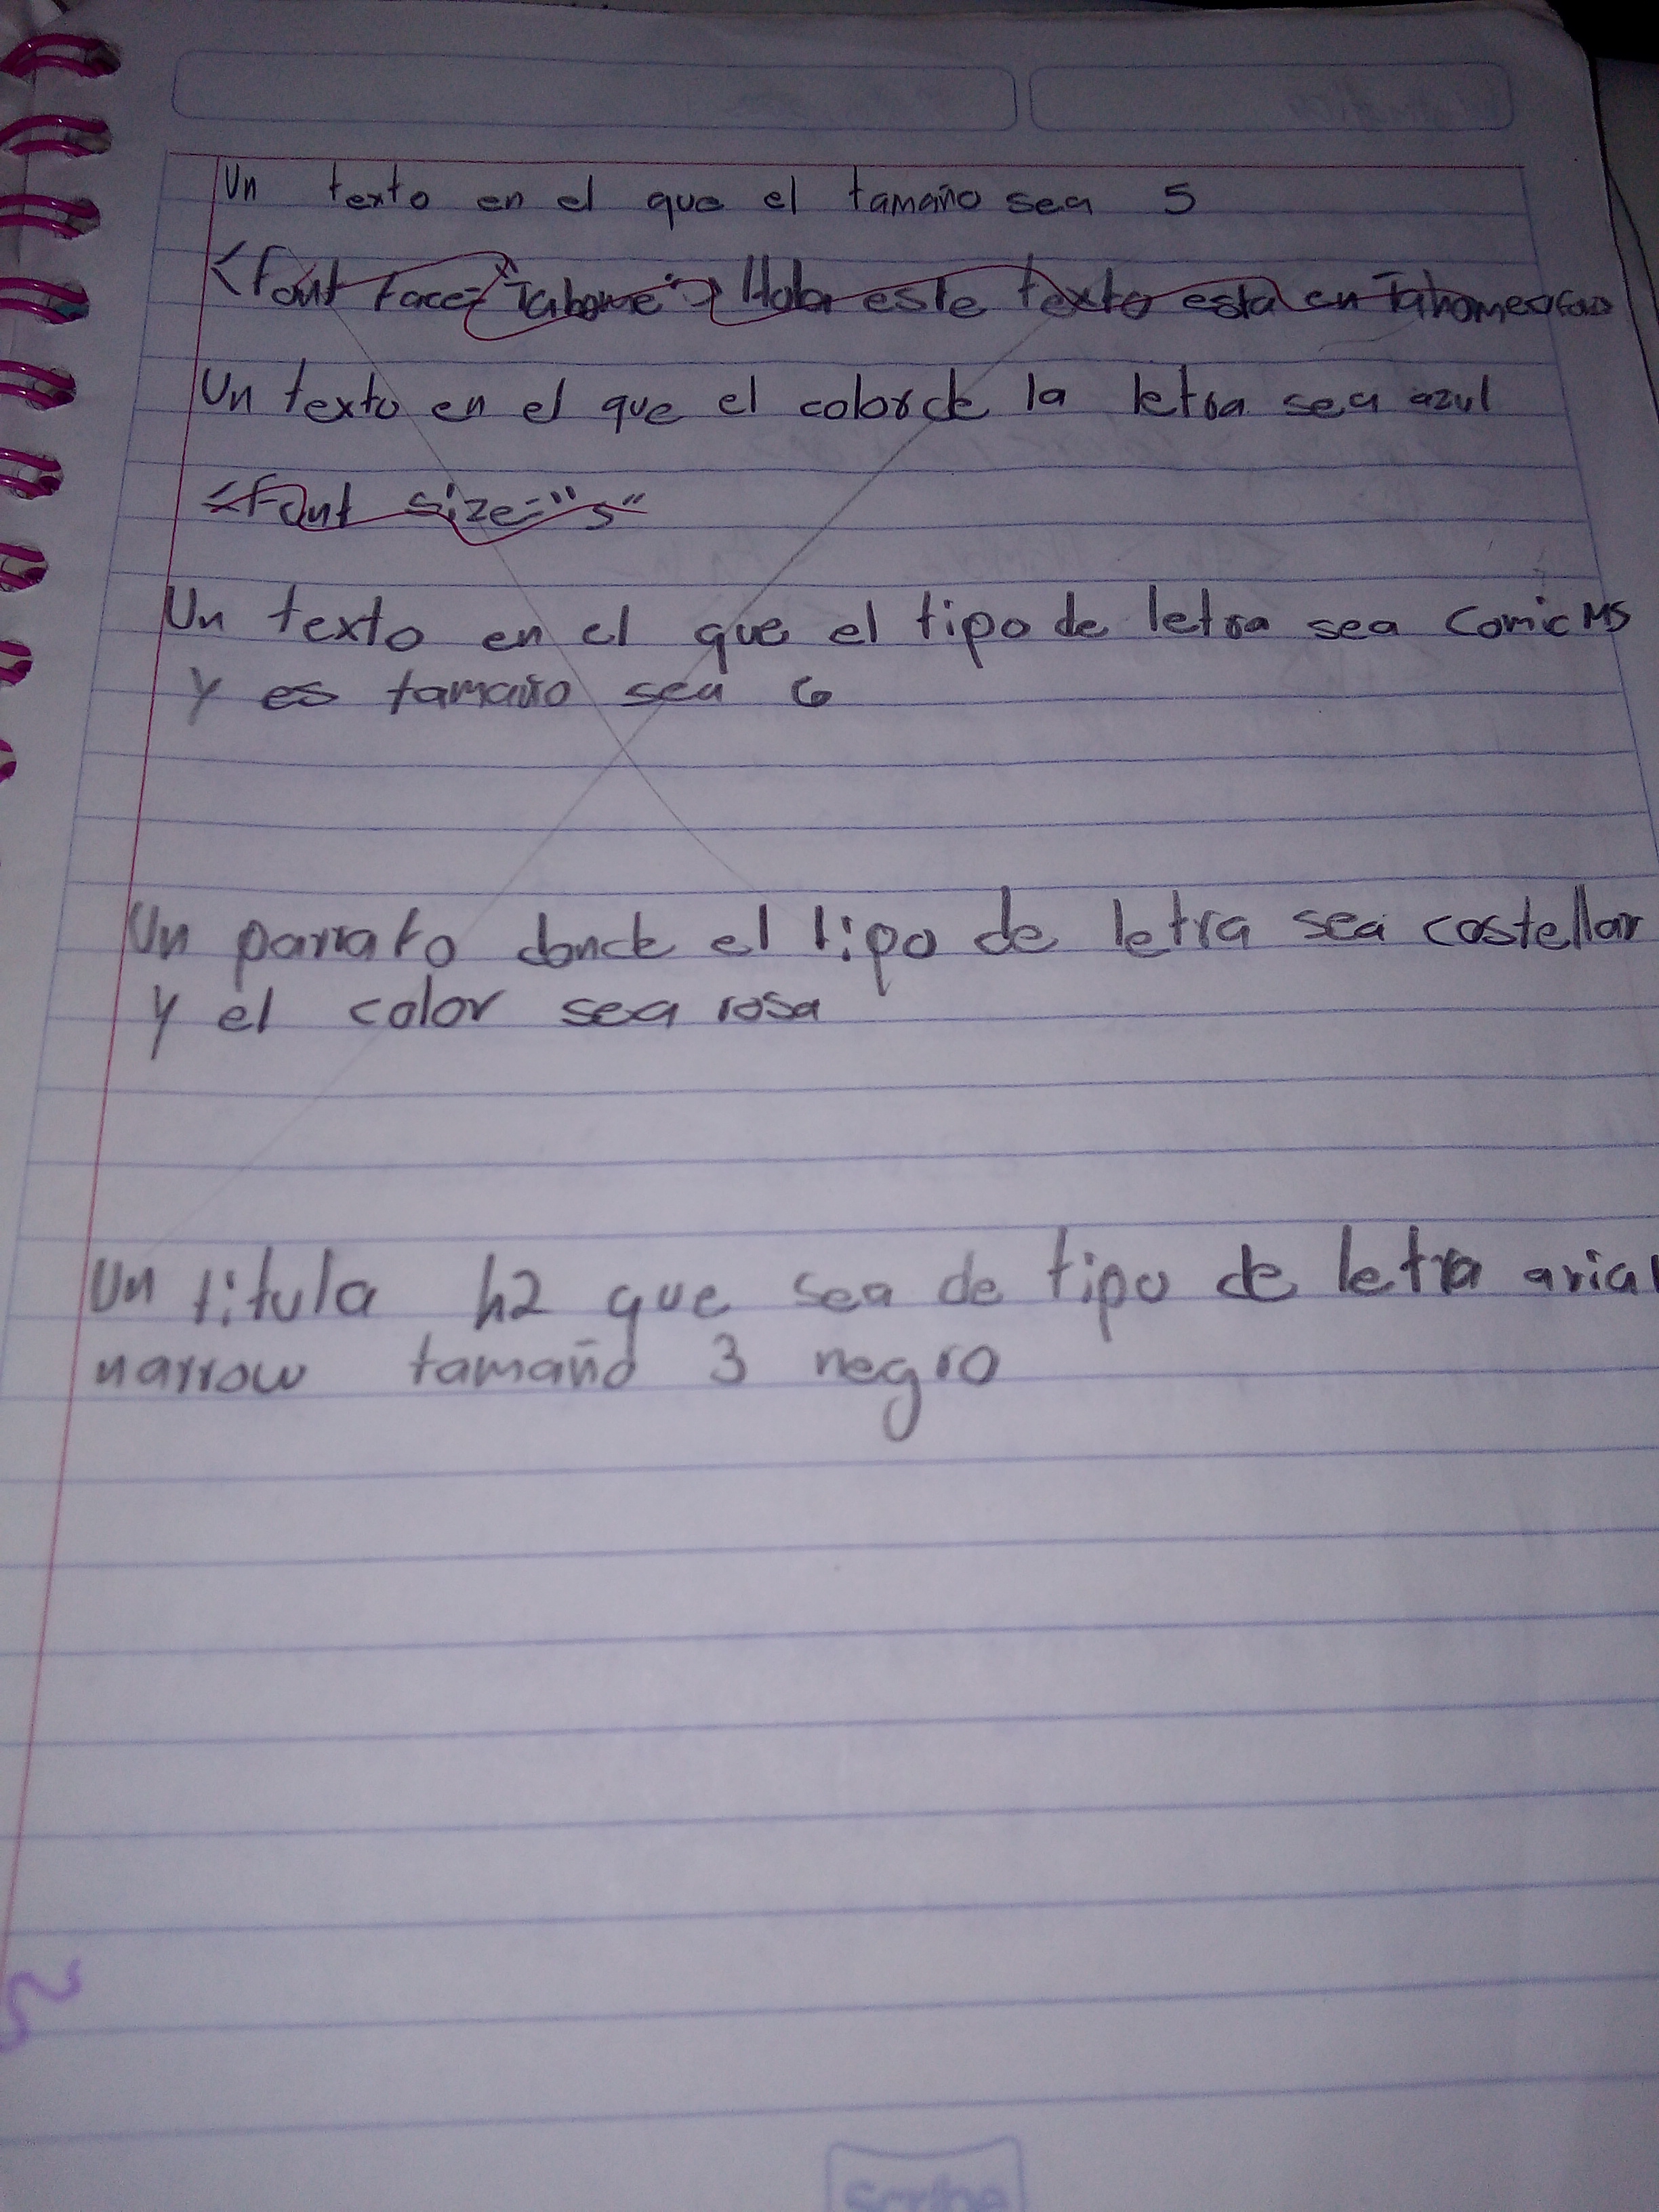 Un texto en el que el tamaño sea 5
<font face="Tahome"> Hola este texto esta en Tahome
Un texto en el que el color de la letra sea azul
<font size="5"
Un texto en el que el tipo de letra sea Comic MS
y es tamaño sea 6
Un parrafo donde el tipo de letra sea castellar
y el color sea rosa
Un titula h2 que sea de tipo de letra arial
narrow tamaño 3 negro
Scribe